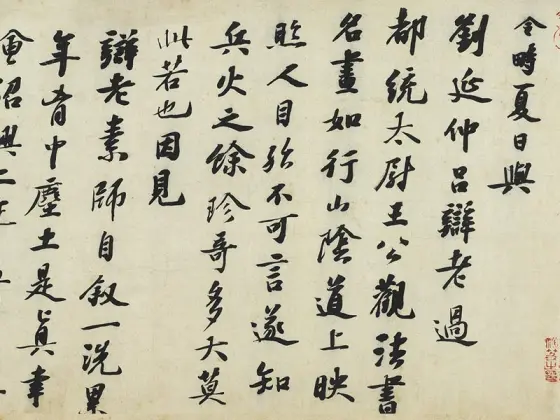 令時夏日與
劉延仲呂辯老過
都統太尉王公觀法書
名畫如行山陰道上映
照人目殆不可言遂知
兵火之餘珍奇多大莫
此若也因見
辯老素師自叙一洗累
年胷中塵土是眞幸
會紹興二